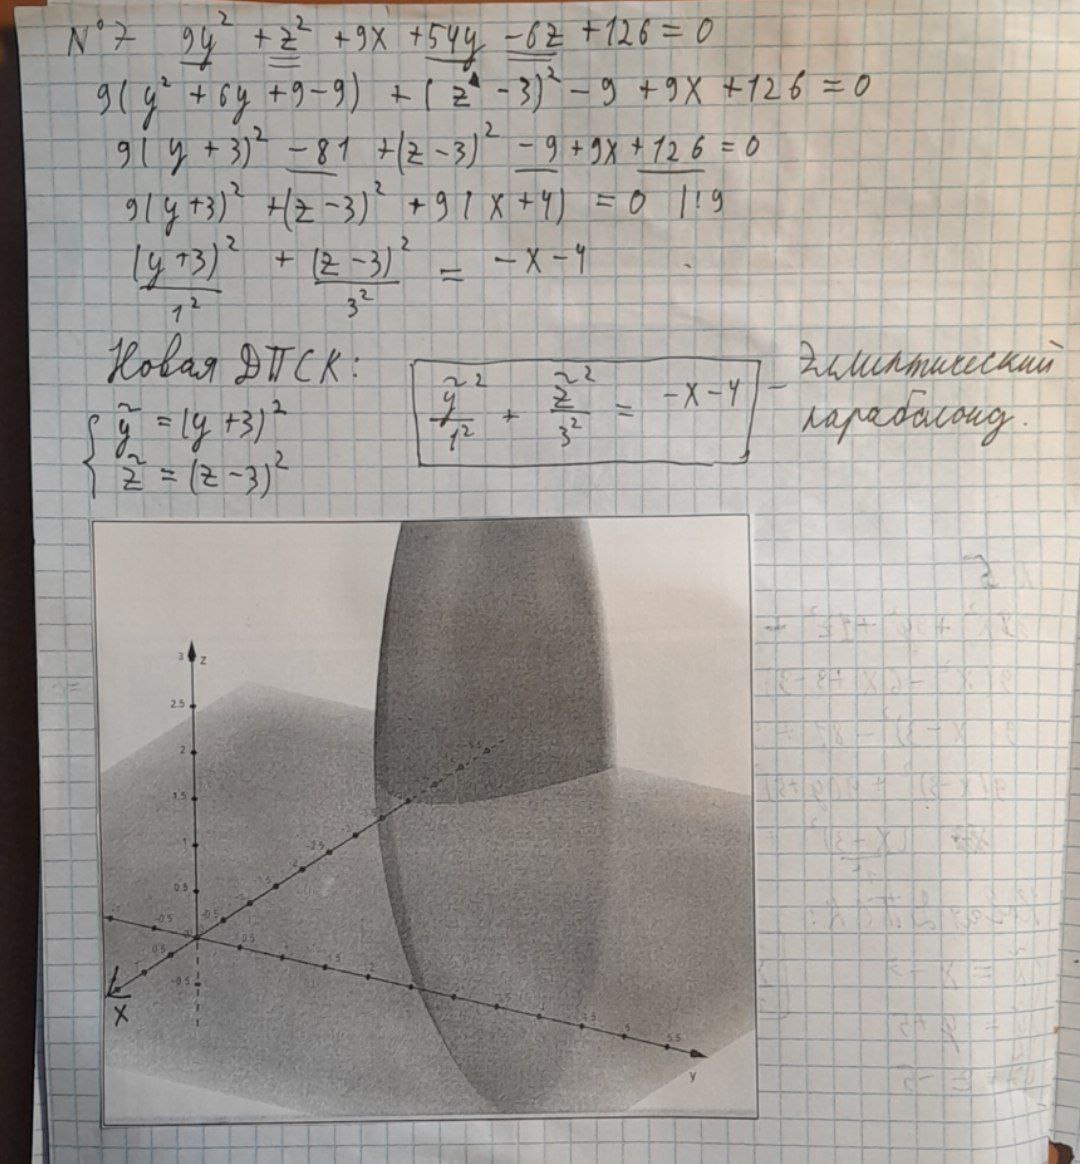 N°7 9y² + z² + 9x + 54y - 6z + 126 = 0
9(y² + 6y + 9 - 9) + (z - 3)² - 9 + 9x + 126 = 0
9(y + 3)² - 81 + (z - 3)² - 9 + 9x + 126 = 0
9(y+3)² + (z - 3)² + 9(x + 4) = 0 |:9
(y+3)²/1² + (z - 3)²/3² = -x - 4
Новая ДПСК:
{ ỹ = (y + 3)²
z̃ = (z - 3)²
ỹ²/1² + z̃²/3² = -x - 4 - Эллиптический
параболоид.
3 z
2.5
2
1.5
1
0.5
-0.5
x
y